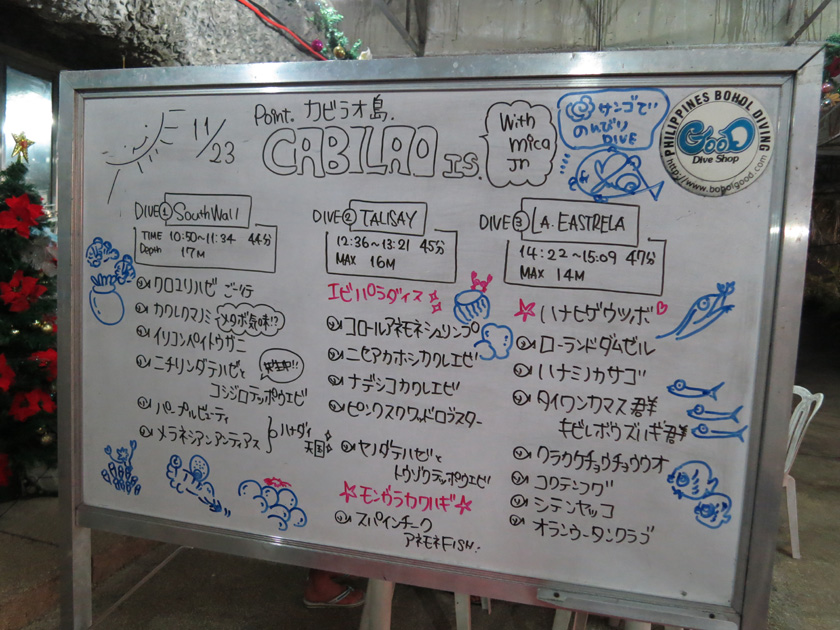 11/23
Point. カビラオ島.
CABILAO IS.
With
mica
Jn
サンゴで
のんびり
DIVE
PHILIPPINES BOHOL DIVING
GOOD
Dive Shop
http://www.boholgood.com
DIVE① South Wall
TIME 10:50~11:34 44分
Depth 17M
クロユリハゼ ご一行
カクレクマノミ メタボ気味!?
イソコンペイトウガニ
ニチリンダテハゼと
コシジロテッポウエビ
共生中!!
パープルビューティ
メラネシアンアンティアス
ハナダイ
天国
DIVE② TALISAY
12:36~13:21 45分
MAX 16M
エビパラダイス
コロールアネモネシュリンプ
ニセアカホシカクレエビ
ナデシコカクレエビ
ピンクスクワッドロブスター
ヤノダテハゼと
トウゾクテッポウエビ
モンガラカワハギ
スパインチーク
アネモネFISH.
DIVE③ A. EASTRELA
14:22~15:09 47分
MAX 14M
ハナヒゲウツボ
ローランドダムゼル
ハナミノカサゴ
タイワンカマス君羊
キビレボウズハギ君羊
クラカケチョウチョウウオ
コクテンフグ
シテンヤッコ
オランウータンクラブ